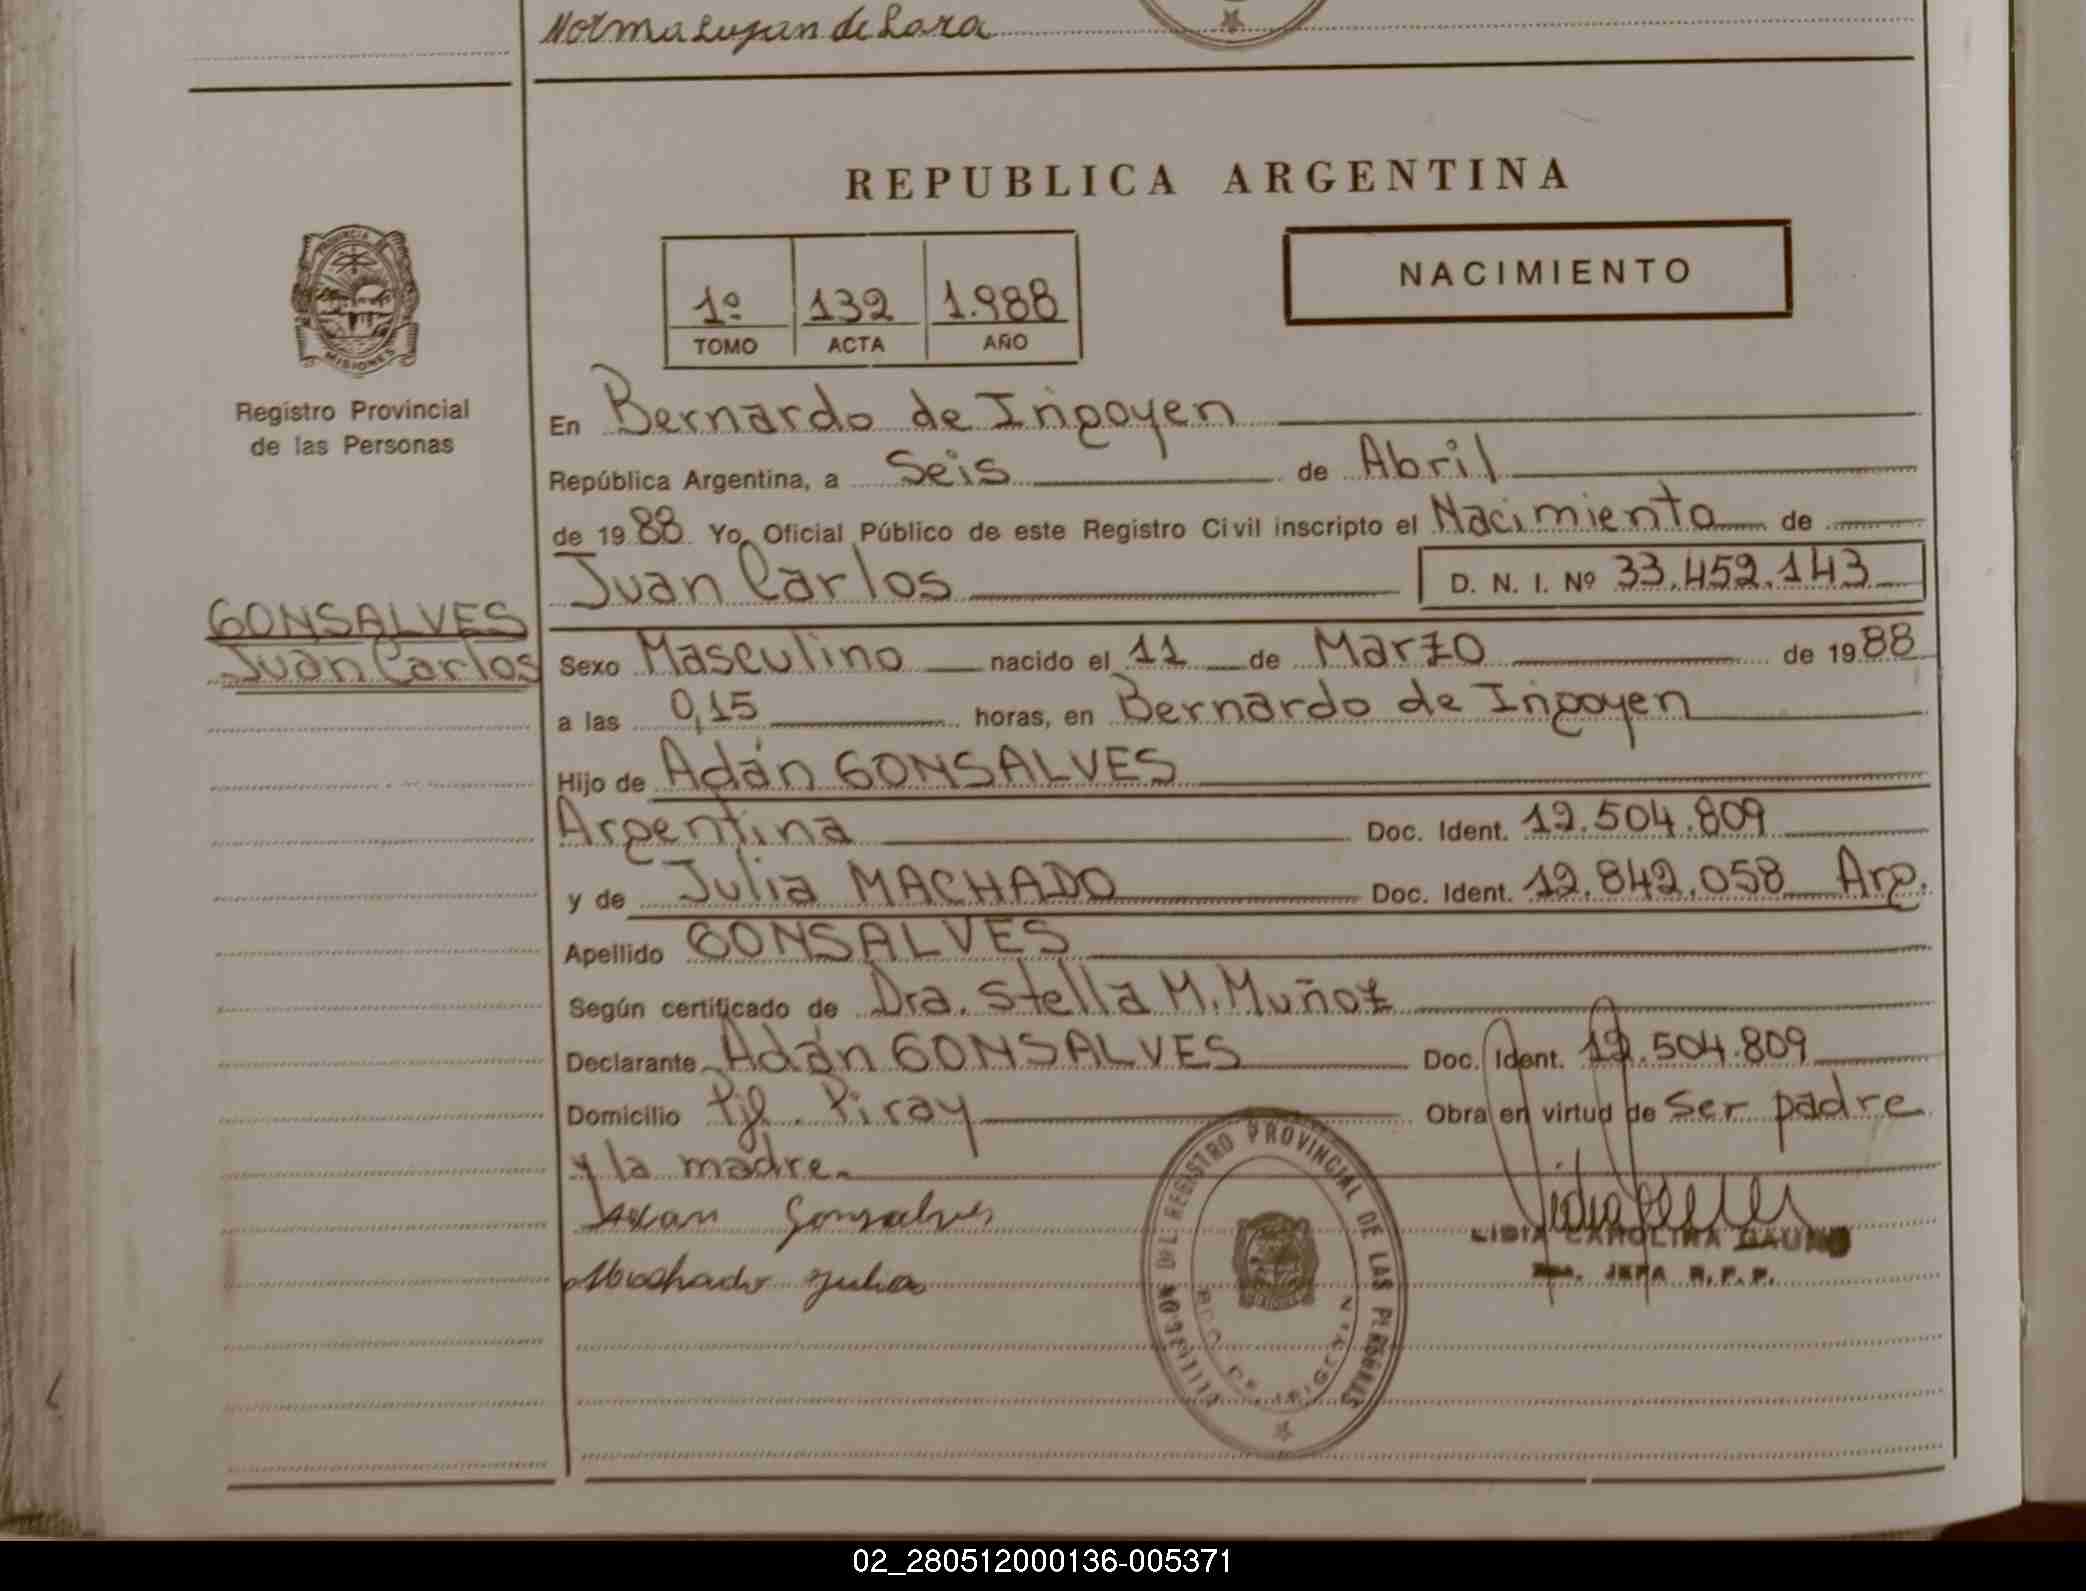 Norma Lujan de Lara
REPUBLICA ARGENTINA
PROVINCIA
MISIONES
Registro Provincial
de las Personas
1º 132 1.988
TOMO ACTA AÑO
NACIMIENTO
En Bernardo de Irigoyen
República Argentina, a Seis de Abril
de 1988 Yo, Oficial Público de este Registro Civil inscripto el Nacimiento de
Juan Carlos D. N. I. Nº 33.452.143
GONSALVES
Juan Carlos
Sexo Masculino nacido el 11 de Marzo de 1988
a las 0,15 horas, en Bernardo de Irigoyen
Hijo de Adán GONSALVES
Argentina Doc. Ident. 12.504.809
y de Julia MACHADO Doc. Ident. 12.842.058 Arg.
Apellido GONSALVES
Según certificado de Dra. Stella M. Muñoz
Declarante Adán GONSALVES Doc. Ident. 12.504.809
Domicilio Pje. Piray Obra en virtud de Ser padre
y la madre.
Gonsalves
Machado Julia
DEL REGISTRO PROVINCIAL DE LAS PERSONAS
BDO. DE IRIGOYEN
LIDIA CAROLINA
JEFA R.P.P.
02_280512000136-005371